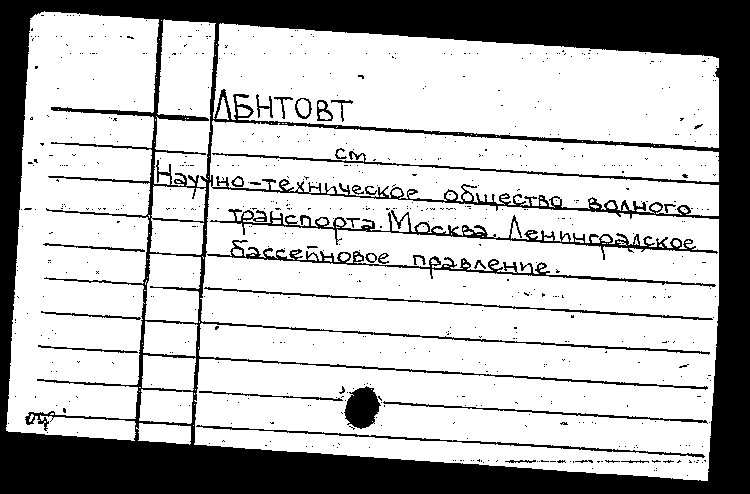 ЛБНТОВТ
ст.
Научно-техническое общество водного
транспорта. Москва. Ленинградское
бассейновое правление.